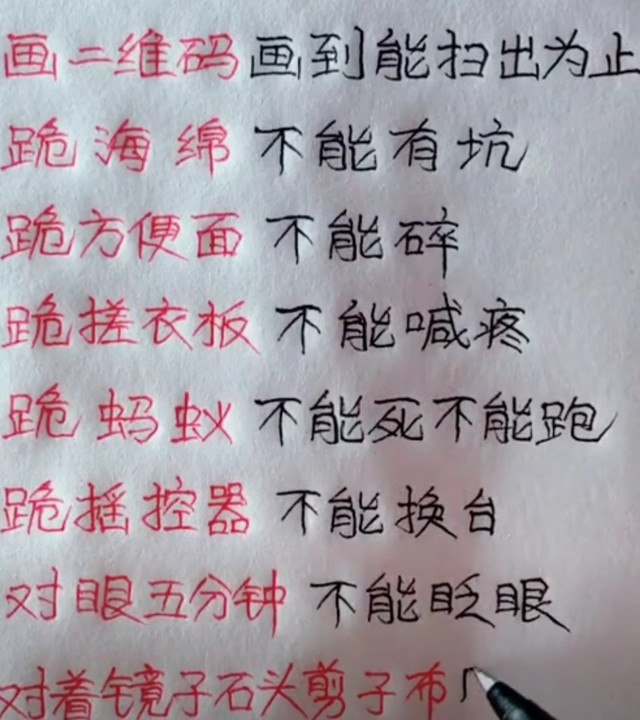 画二维码画到能扫出为止
跪海绵 不能有坑
跪方便面 不能碎
跪搓衣板 不能喊疼
跪蚂蚁 不能死不能跑
跪摇控器 不能换台
对眼五分钟 不能眨眼
对着镜子石头剪子布